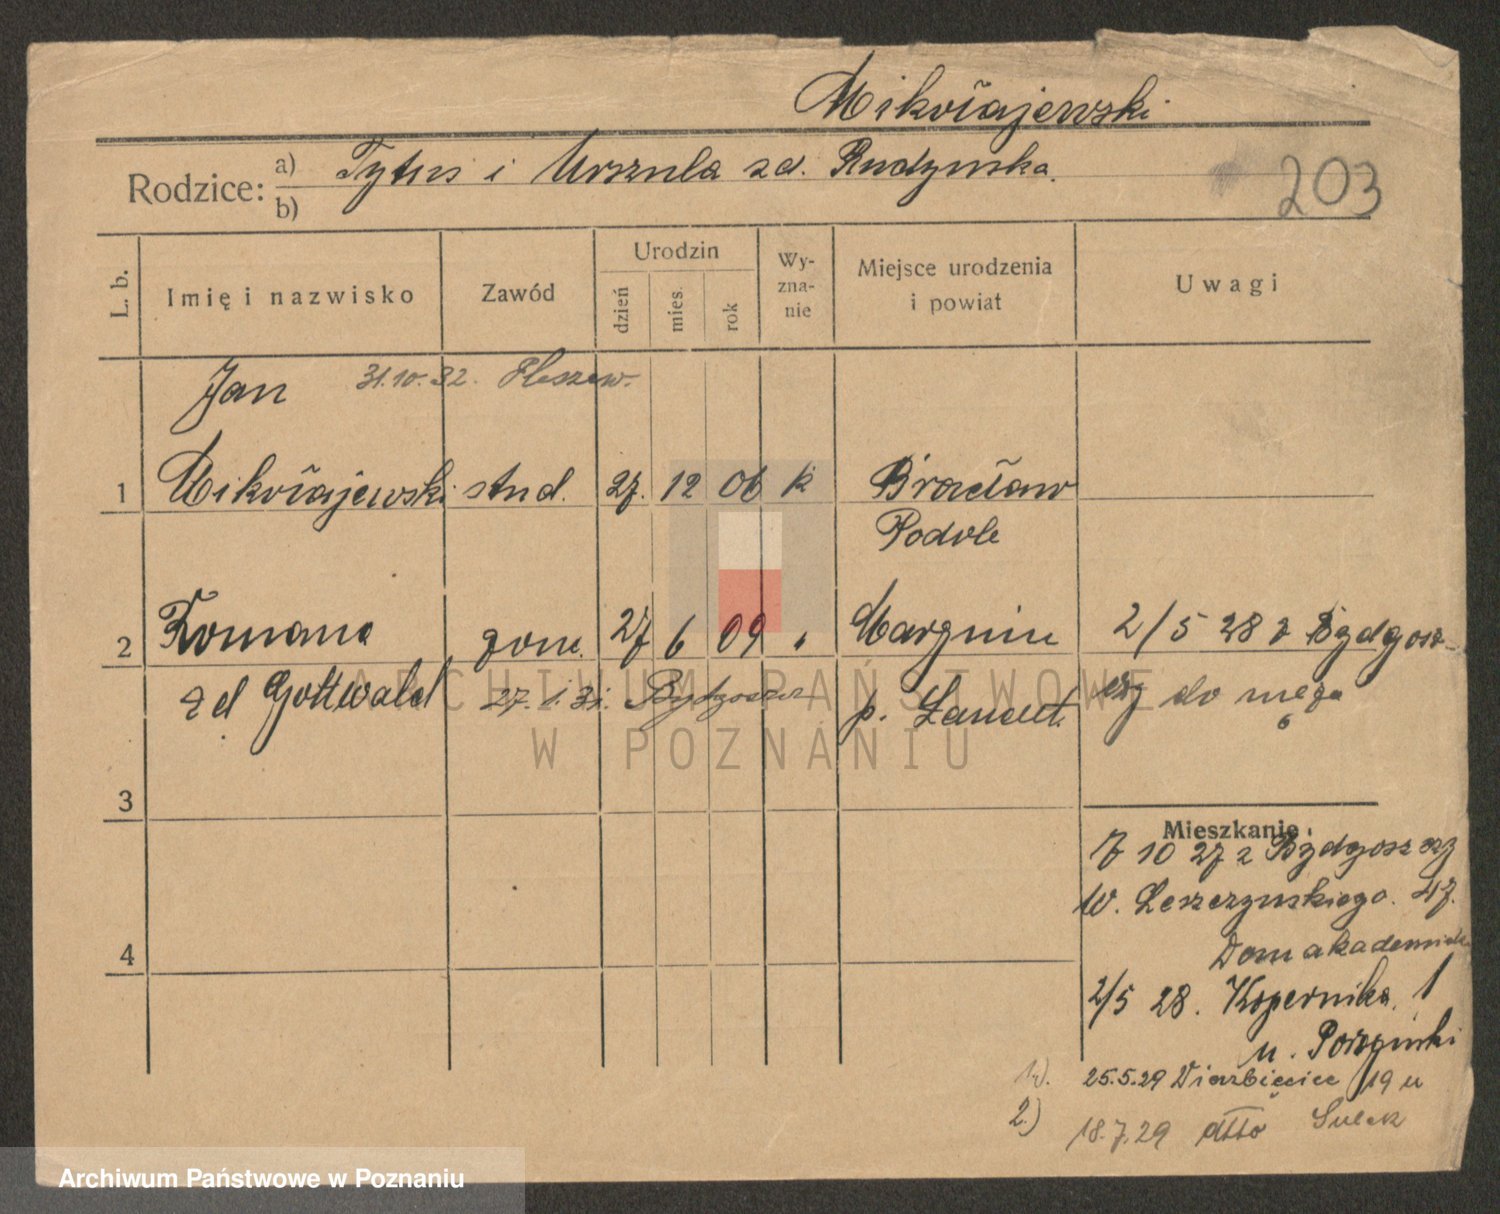 Mikołajewski
Rodzice: a) Tytus i Urszula zd. Rudzynska.
b)
203
L. b.
Imię i nazwisko
Zawód
Urodzin
dzień
mies.
rok
Wy-
zna-
nie
Miejsce urodzenia
i powiat
Uwagi
Jan 31.10.32. Pleszew.
1 Mikołajewski stud. 27. 12 06 k Bracław
Podole
2 Romana żona. 27 6 09 " 2/5 28 z Bydgosz-
zd Gottwald 27. 1. 31. Bydgoszcz p. Łańcut. czy do męża
ARCHIWUM PAŃSTWOWE
W POZNANIU
3
Mieszkanie:
7 10 27 z Bydgoszczy
W. Leszczynskiego. 47.
4
Dom akademick
2/5 28. Kopernika. 1
u.
1). 25.5.29 Wierzbięcice 19 u
2.) 18.7.29 dtto
Archiwum Państwowe w Poznaniu